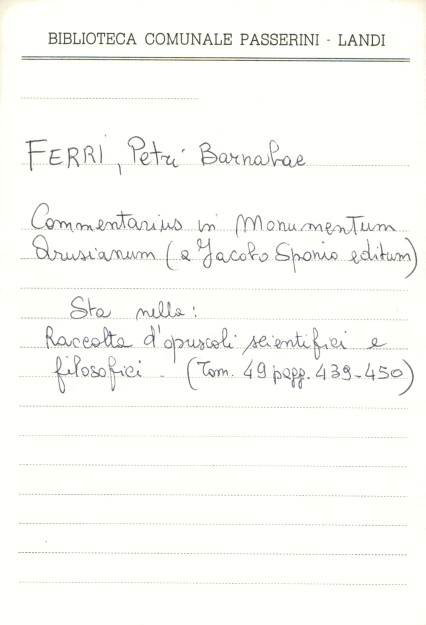 BIBLIOTECA COMUNALE PASSERINI - LANDI
FERRI, Petri Barnabae
Commentarius in Monumentum
Drusianum (a Jacobo Sponio editum)
Sta nella:
Raccolta d'opuscoli scientifici e
filosofici. (Tom. 49 pagg. 439-450)